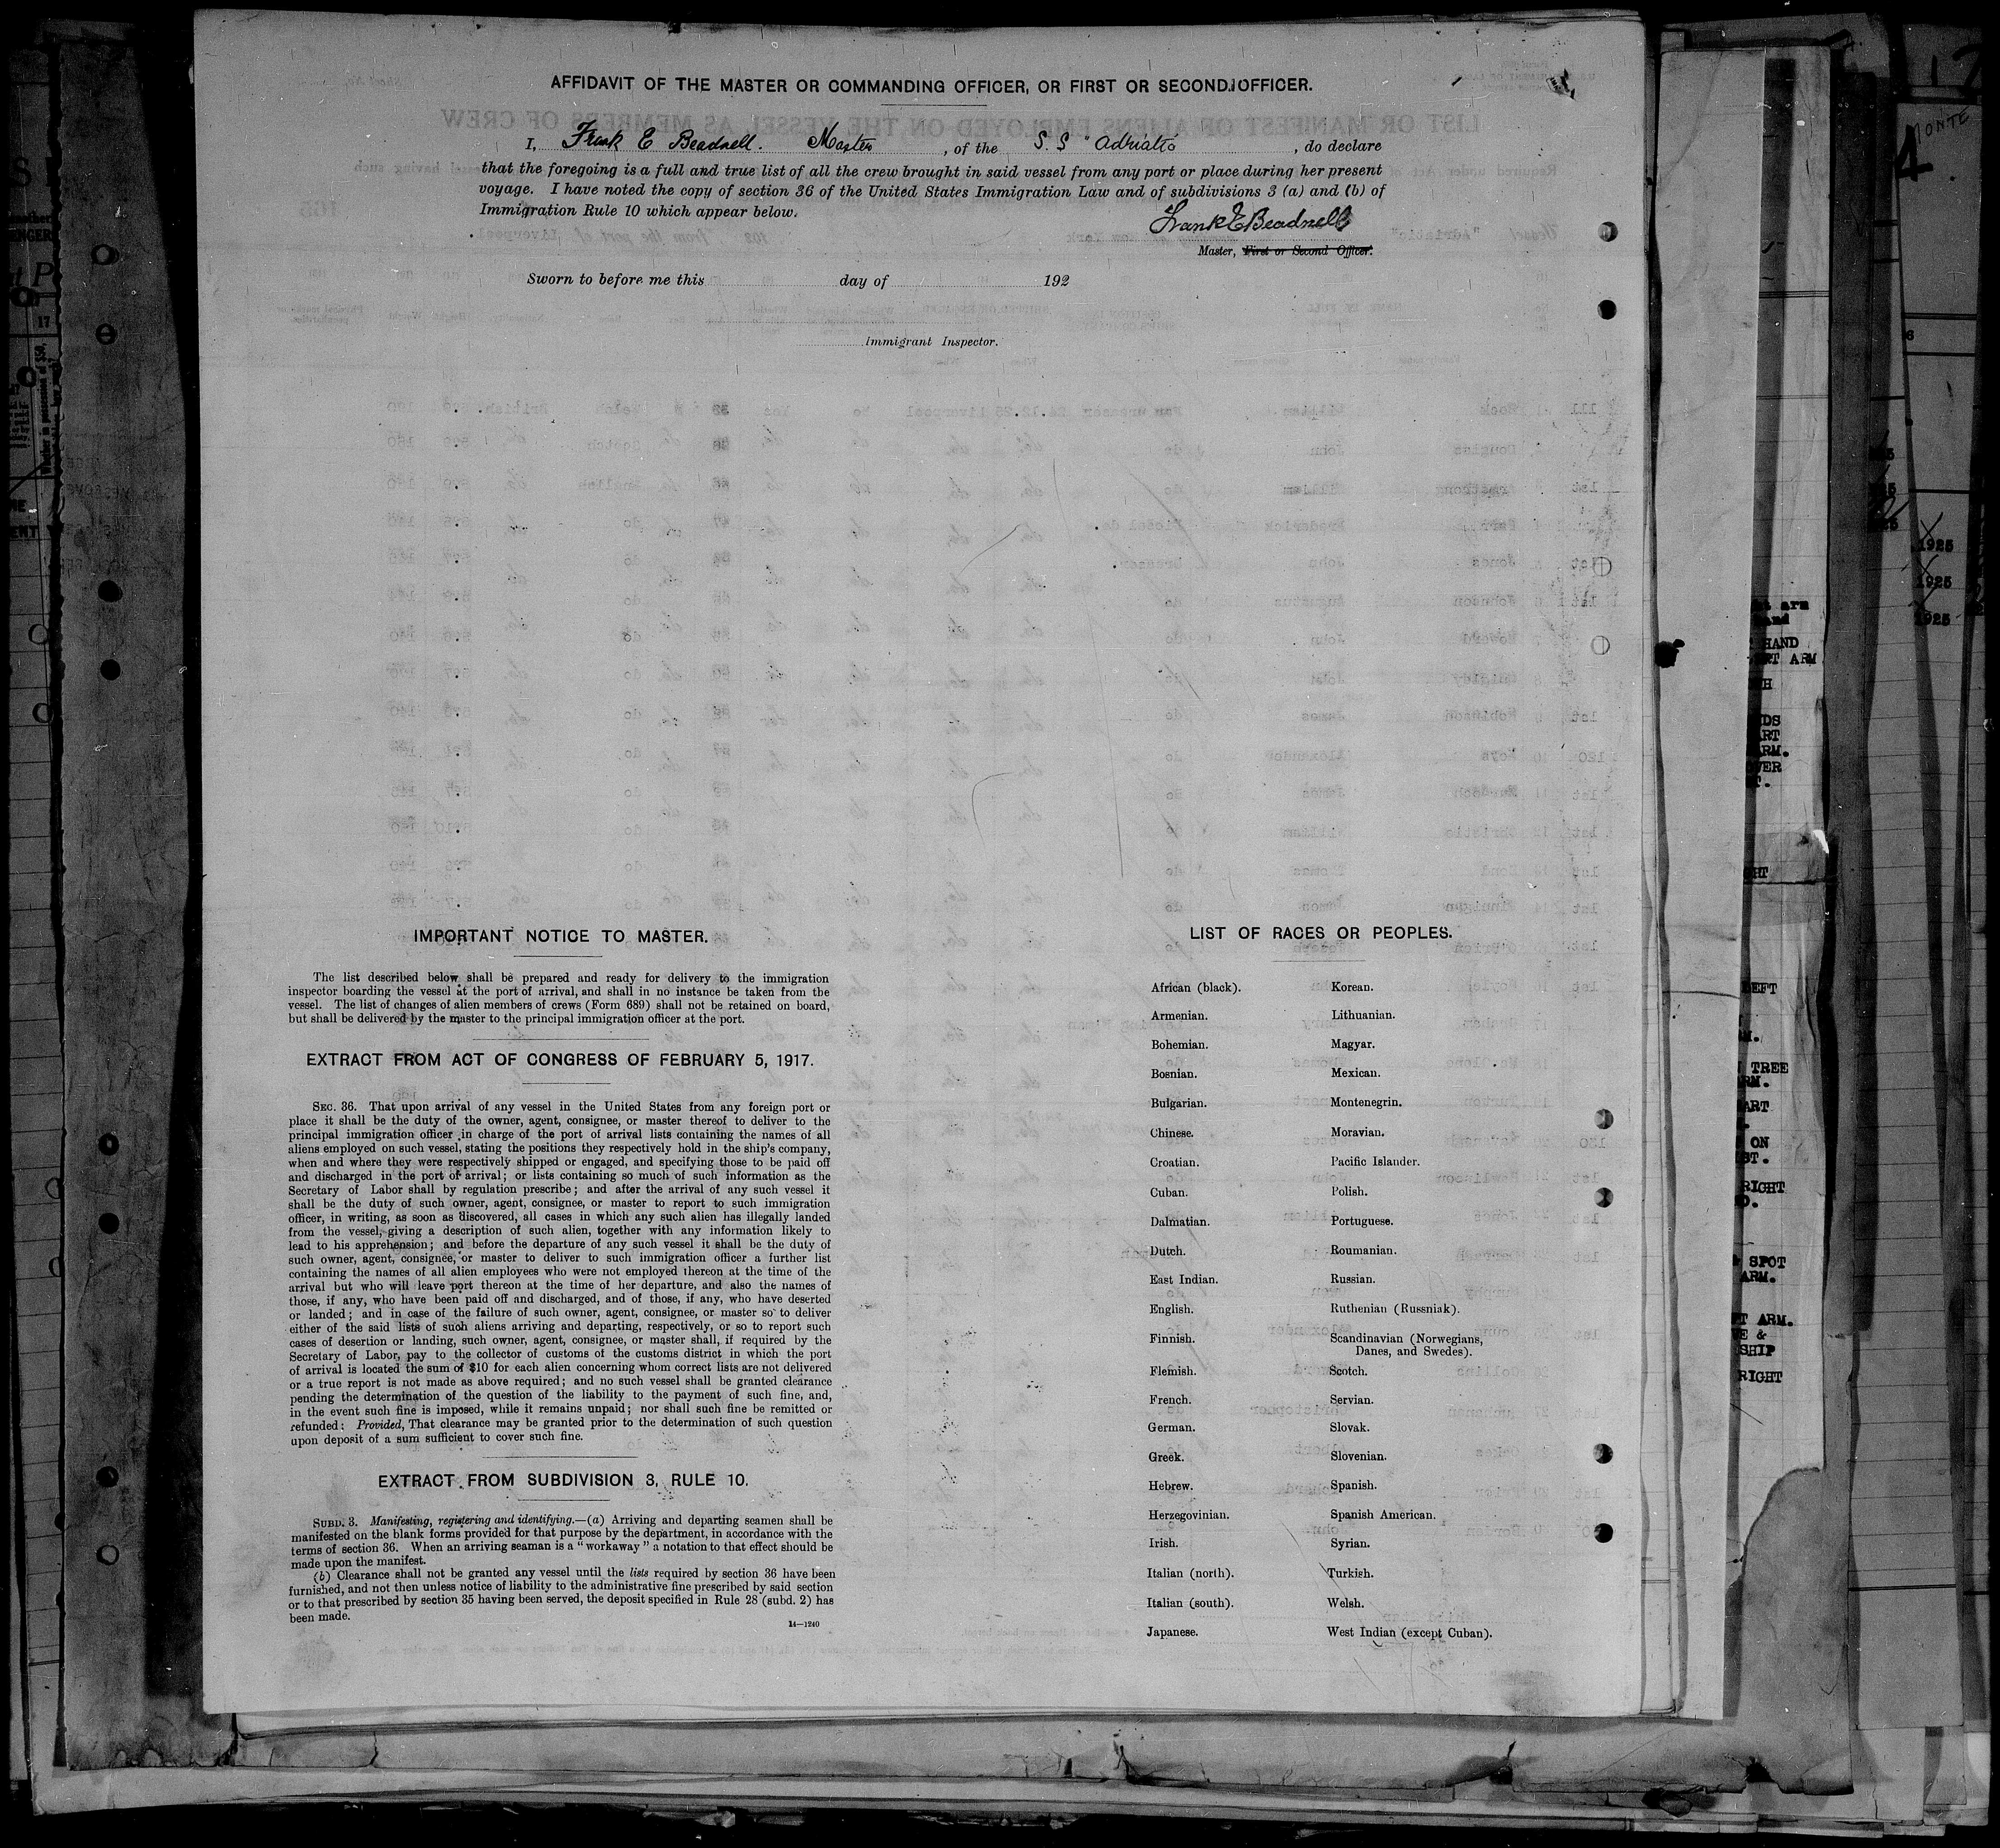 AFFIDAVIT OF THE MASTER OR COMMANDING OFFICER, OR FIRST OR SECOND OFFICER.
I, Frank E Beadnell. Master, of the S.S "Adriatic", do declare
that the foregoing is a full and true list of all the crew brought in said vessel from any port or place during her present
voyage. I have noted the copy of section 36 of the United States Immigration Law and of subdivisions 3 (a) and (b) of
Immigration Rule 10 which appear below.
Frank E Beadnell
Master, First or Second Officer.
Sworn to before me this day of 192
Immigrant Inspector.
IMPORTANT NOTICE TO MASTER.
The list described below shall be prepared and ready for delivery to the immigration
inspector boarding the vessel at the port of arrival, and shall in no instance be taken from the
vessel. The list of changes of alien members of crews (Form 689) shall not be retained on board,
but shall be delivered by the master to the principal immigration officer at the port.
EXTRACT FROM ACT OF CONGRESS OF FEBRUARY 5, 1917.
SEC. 36. That upon arrival of any vessel in the United States from any foreign port or
place it shall be the duty of the owner, agent, consignee, or master thereof to deliver to the
principal immigration officer in charge of the port of arrival lists containing the names of all
aliens employed on such vessel, stating the positions they respectively hold in the ship's company,
when and where they were respectively shipped or engaged, and specifying those to be paid off
and discharged in the port of arrival; or lists containing so much of such information as the
Secretary of Labor shall by regulation prescribe; and after the arrival of any such vessel it
shall be the duty of such owner, agent, consignee, or master to report to such immigration
officer, in writing, as soon as discovered, all cases in which any such alien has illegally landed
from the vessel, giving a description of such alien, together with any information likely to
lead to his apprehension; and before the departure of any such vessel it shall be the duty of
such owner, agent, consignee, or master to deliver to such immigration officer a further list
containing the names of all alien employees who were not employed thereon at the time of the
arrival but who will leave port thereon at the time of her departure, and also the names of
those, if any, who have been paid off and discharged, and of those, if any, who have deserted
or landed; and in case of the failure of such owner, agent, consignee, or master so to deliver
either of the said lists of such aliens arriving and departing, respectively, or so to report such
cases of desertion or landing, such owner, agent, consignee, or master shall, if required by the
Secretary of Labor, pay to the collector of customs of the customs district in which the port
of arrival is located the sum of $10 for each alien concerning whom correct lists are not delivered
or a true report is not made as above required; and no such vessel shall be granted clearance
pending the determination of the question of the liability to the payment of such fine, and,
in the event such fine is imposed, while it remains unpaid; nor shall such fine be remitted or
refunded: Provided, That clearance may be granted prior to the determination of such question
upon deposit of a sum sufficient to cover such fine.
EXTRACT FROM SUBDIVISION 3, RULE 10.
SUBD. 3. Manifesting, registering and identifying.—(a) Arriving and departing seamen shall be
manifested on the blank forms provided for that purpose by the department, in accordance with the
terms of section 36. When an arriving seaman is a "workaway" a notation to that effect should be
made upon the manifest.
(b) Clearance shall not be granted any vessel until the lists required by section 36 have been
furnished, and not then unless notice of liability to the administrative fine prescribed by said section
or to that prescribed by section 35 having been served, the deposit specified in Rule 28 (subd. 2) has
been made.
14—1240
LIST OF RACES OR PEOPLES.
African (black). Korean.
Armenian. Lithuanian.
Bohemian. Magyar.
Bosnian. Mexican.
Bulgarian. Montenegrin.
Chinese. Moravian.
Croatian. Pacific Islander.
Cuban. Polish.
Dalmatian. Portuguese.
Dutch. Roumanian.
East Indian. Russian.
English. Ruthenian (Russniak).
Finnish. Scandinavian (Norwegians,
Danes, and Swedes).
Flemish. Scotch.
French. Servian.
German. Slovak.
Greek. Slovenian.
Hebrew. Spanish.
Herzegovinian. Spanish American.
Irish. Syrian.
Italian (north). Turkish.
Italian (south). Welsh.
Japanese. West Indian (except Cuban).